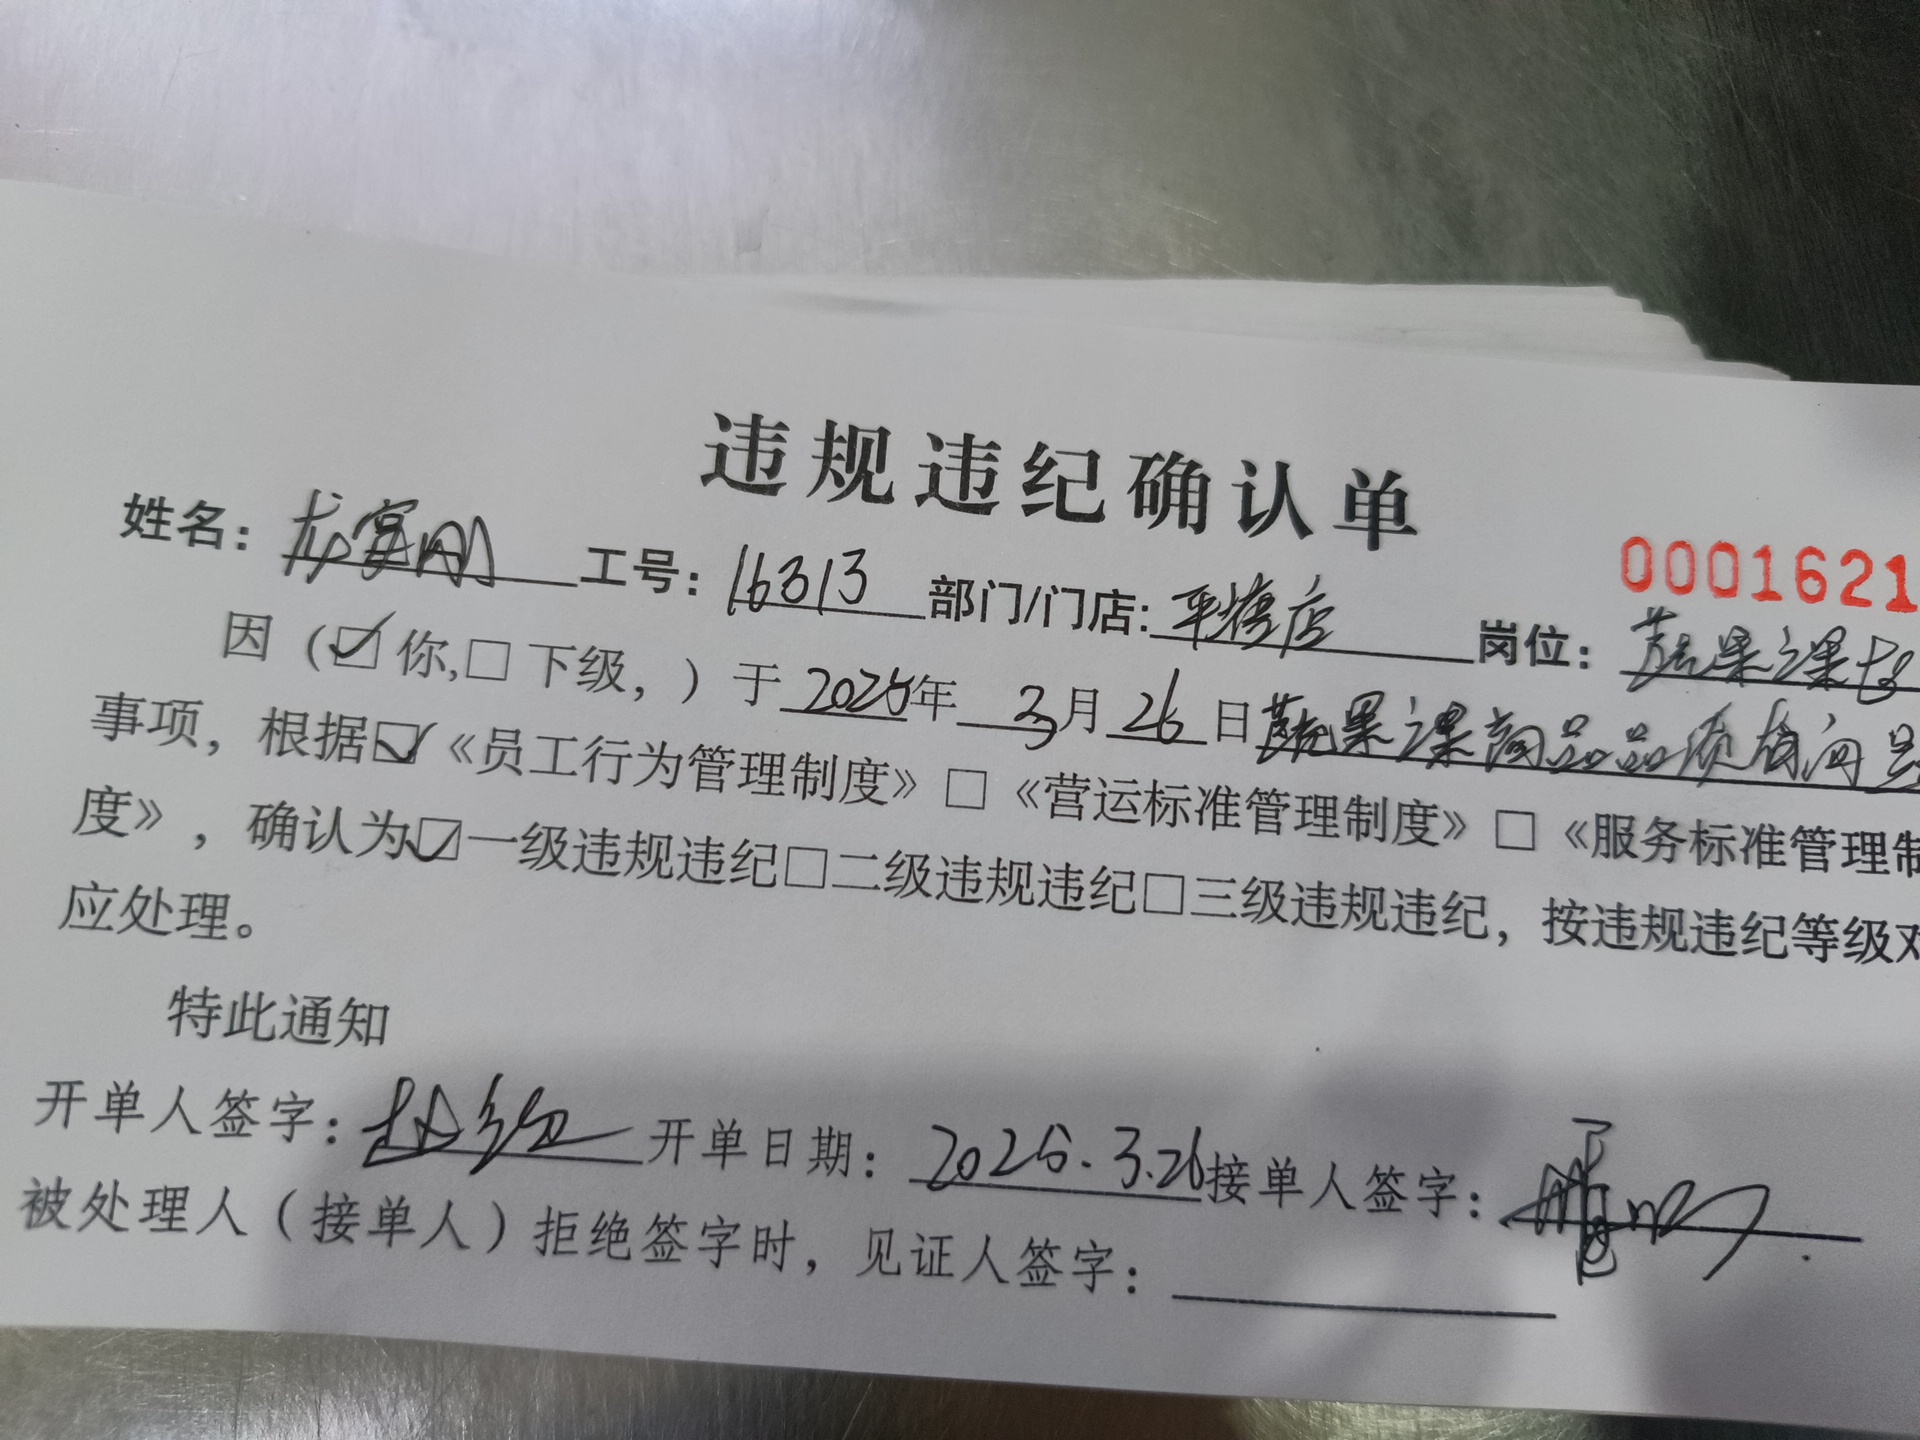 违规违纪确认单
0001621
姓名：龙富刚 工号：16313 部门/门店：平塘店 岗位：蔬果课长
因（☑你,□下级，）于 2026年 3月 26日蔬果课商品品质有问题
事项，根据☑《员工行为管理制度》□《营运标准管理制度》□《服务标准管理制
度》，确认为☑一级违规违纪□二级违规违纪□三级违规违纪，按违规违纪等级对
应处理。
特此通知
开单人签字： 开单日期：2026.3.26接单人签字：
被处理人（接单人）拒绝签字时，见证人签字：